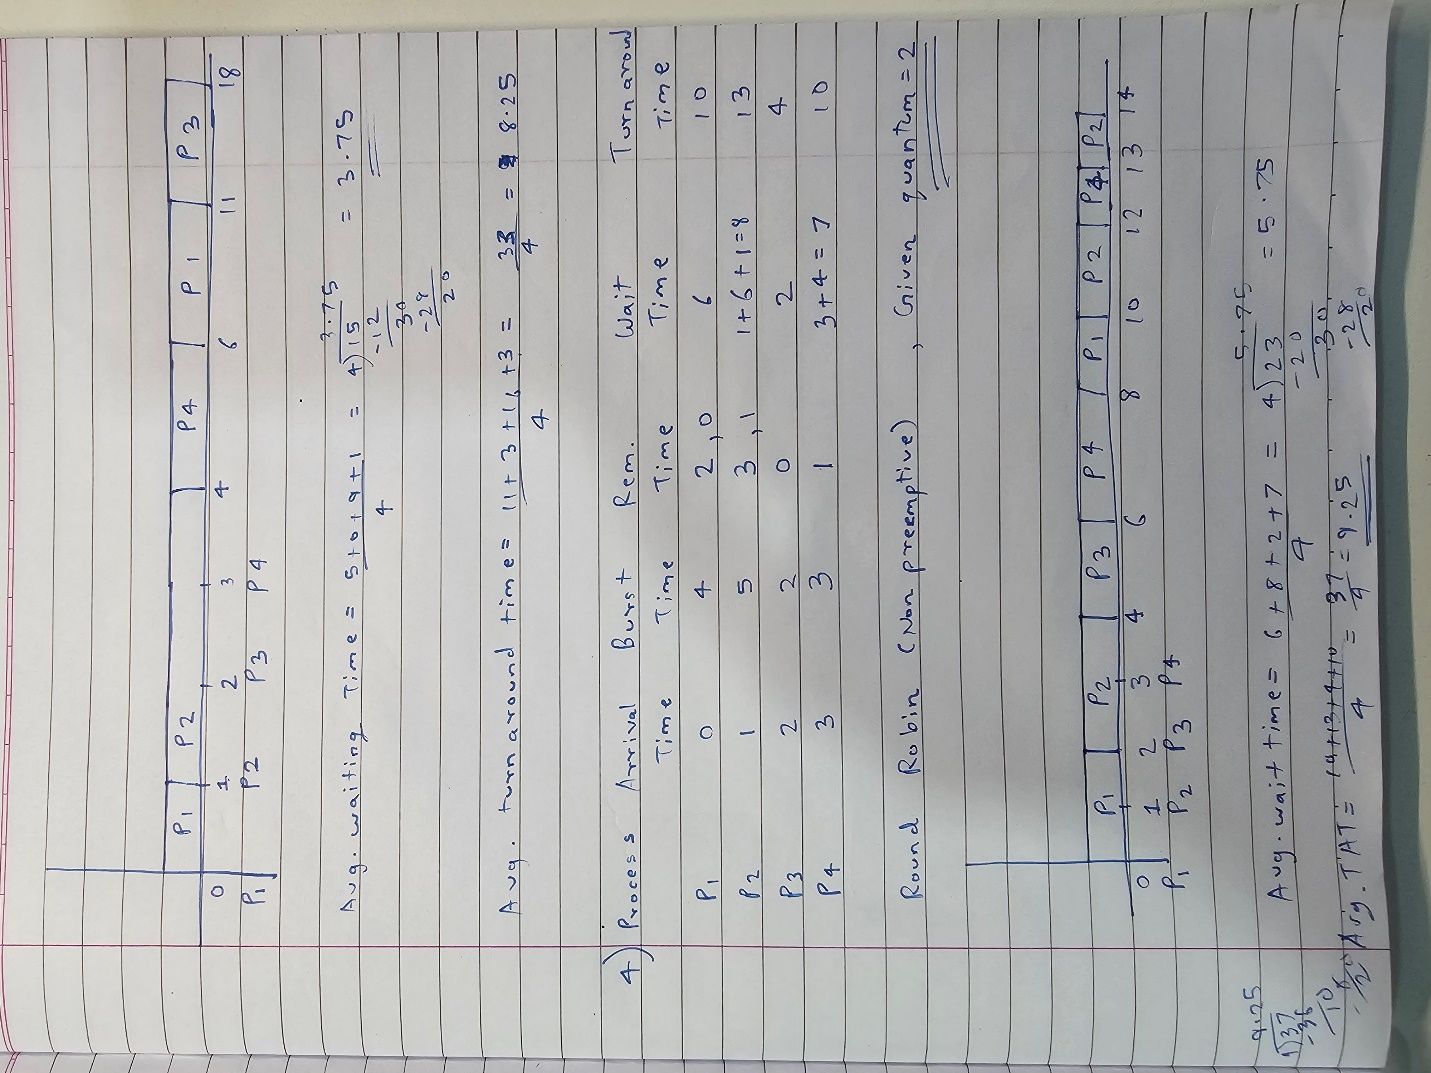 P1 P2 P4 P1 P3
0 1 2 3 4 6 11 18
P1 P2 P3 P4
Avg. waiting Time = 5+0+9+1 = 4)15 = 3.75
4
3.75
-12
30
-28
20
Avg. turnaround time = 11+3+16+3 = 33 = 8.25
4 4
4) Process Arrival Burst Rem. Wait Turnaroun
Time Time Time Time Time
P1 0 4 2,0 6 10
P2 1 5 3,1 1+6+1=8 13
P3 2 2 0 2 4
P4 3 3 1 3+4=7 10
Round Robin (Non preemptive), Given quantum = 2
P1 P2 P3 P4 P1 P2 P4 P2
0 1 2 3 4 6 8 10 12 13 14
P1 P2 P3 P4
Avg. wait time = 6+8+2+7 = 4)23 = 5.75
4
5.75
-20
30
-28
20
Avg. TAT = +13+4+10 = 37 = 9.25
4 4
9.25
4)37
-36
10